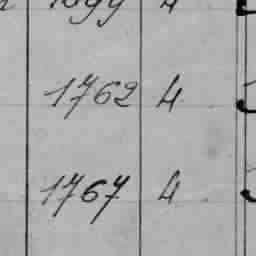 1762 4
1767 4